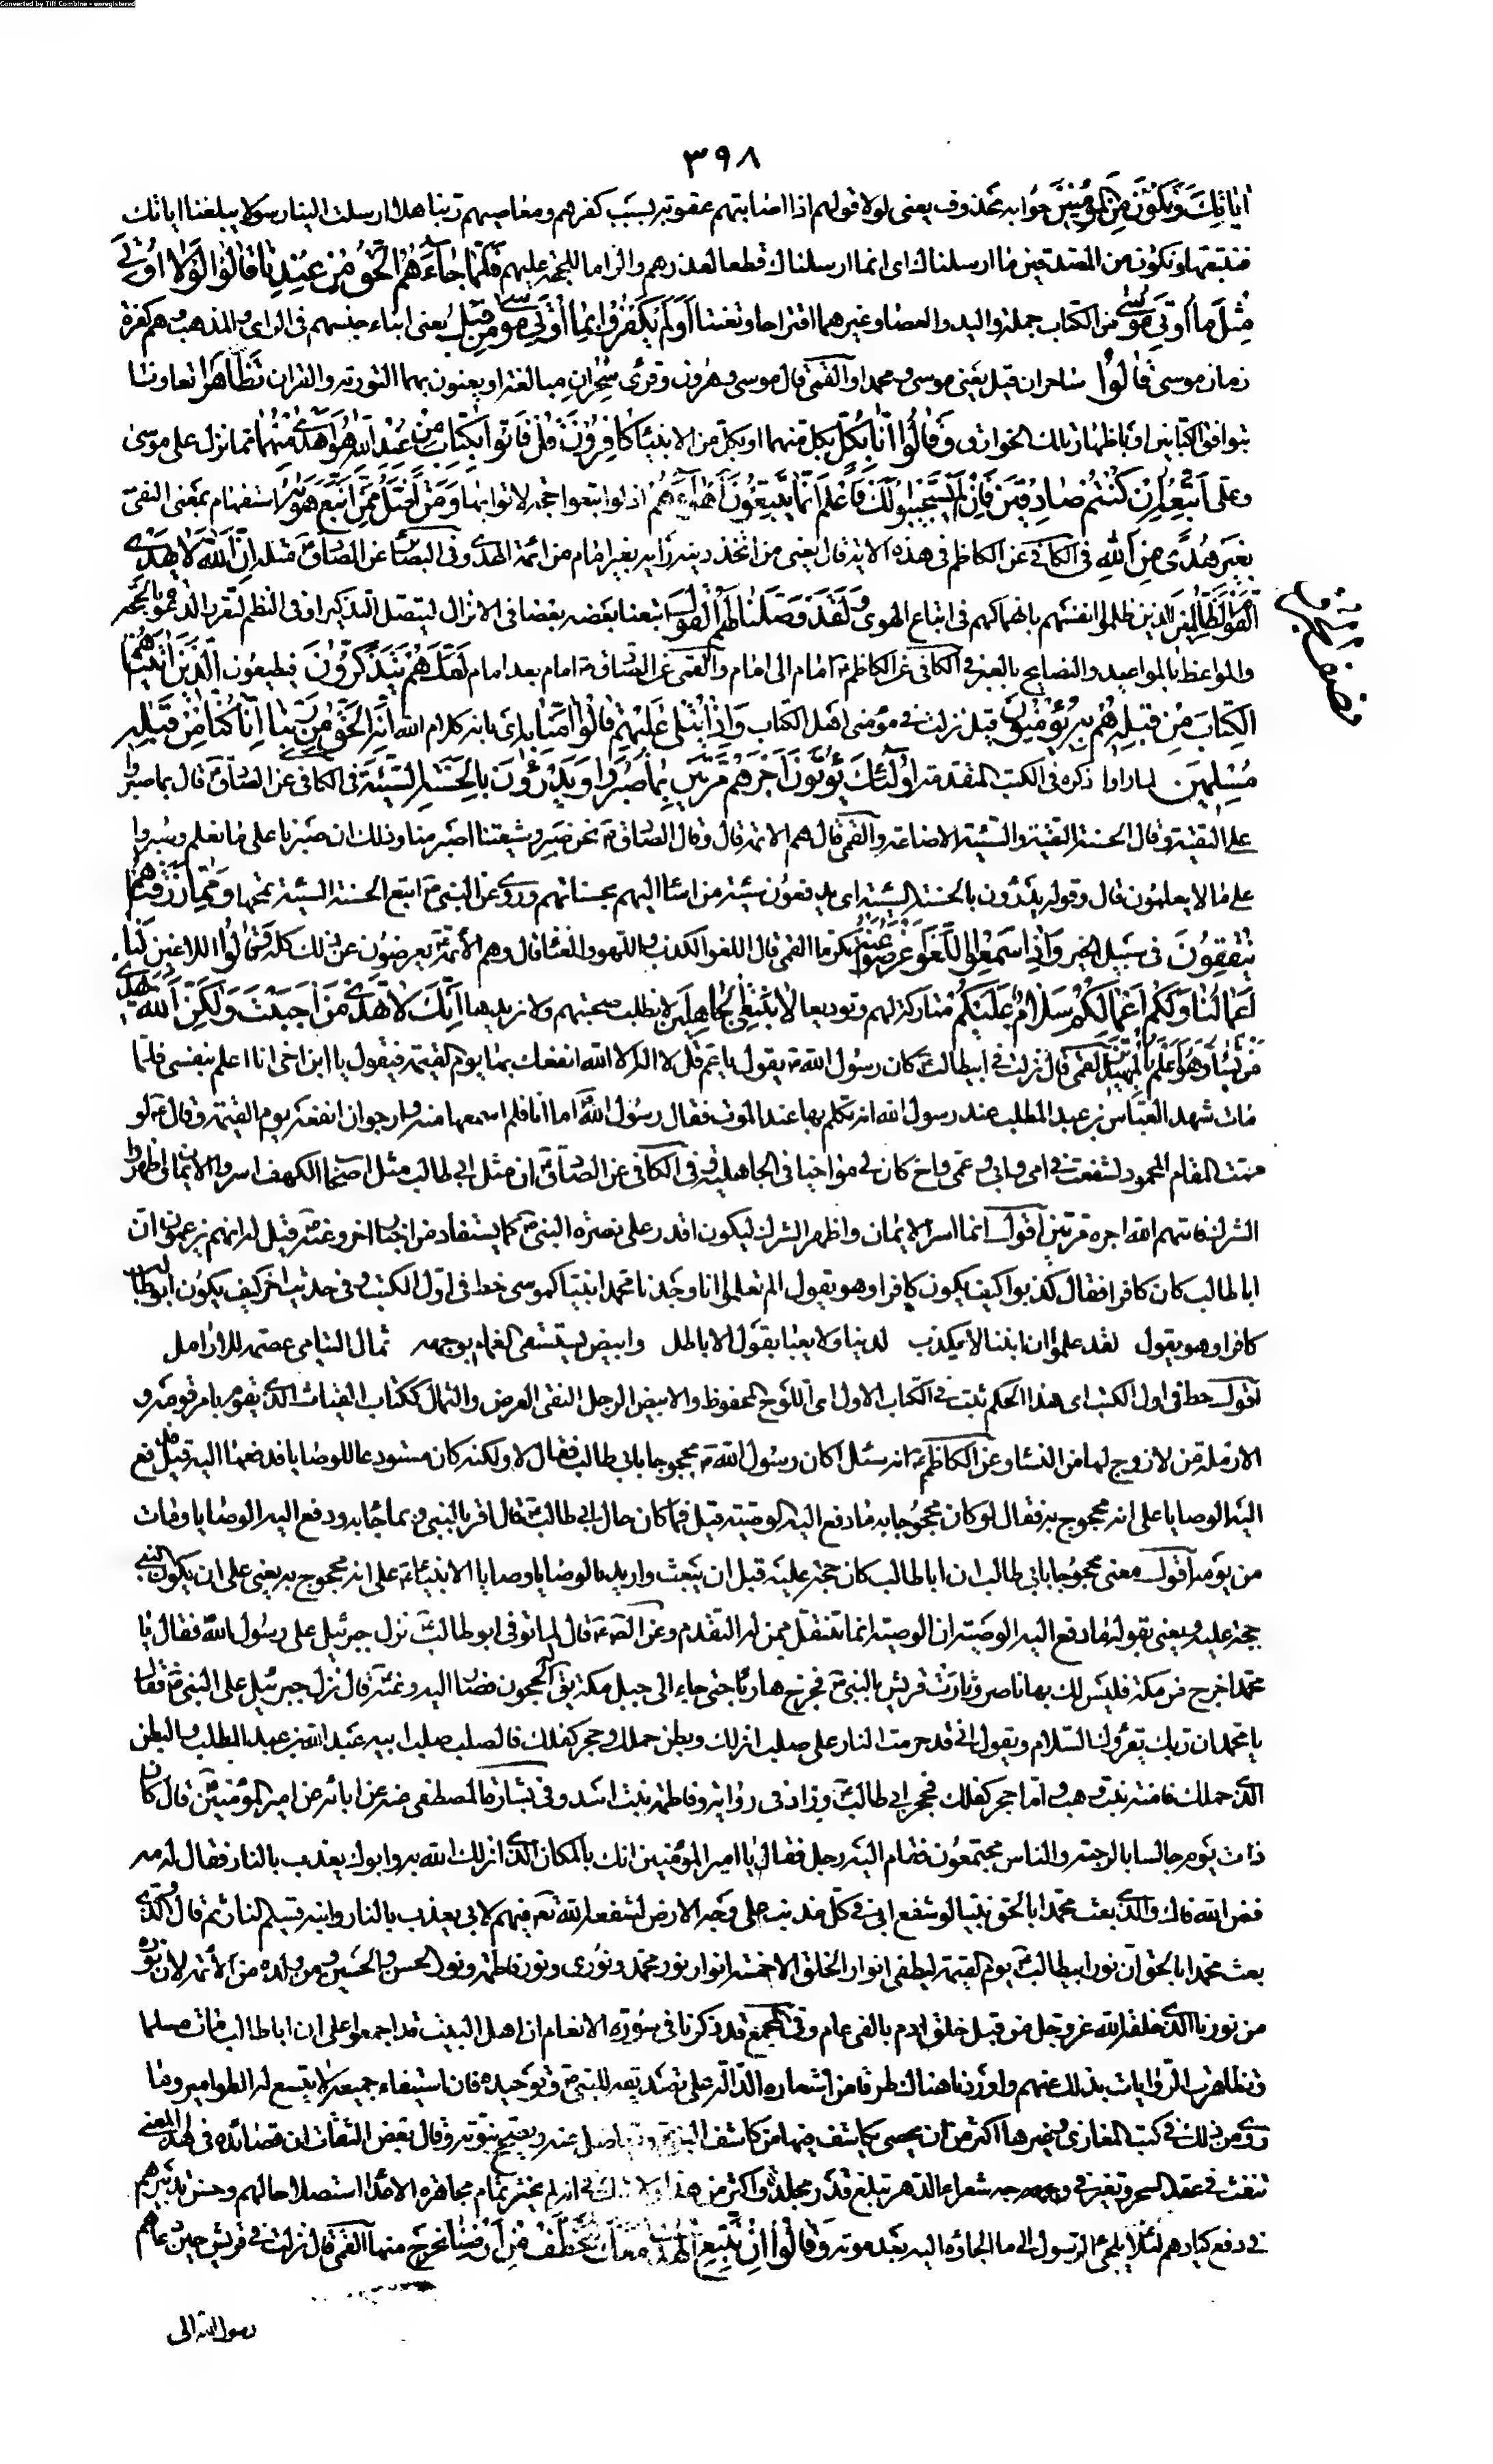 Converted by Tiff Combine - unregistered
٣٩٨
اياتك وَنَكُونَ مِنَ الْمُؤْمِنِينَ جوابه محذوف يعني لولا قولهم اذا اصابتهم عقوبة بسبب كفرهم ومعاصيهم ربنا هلا ارسلت الينا رسولا يبلغنا اياتك
فنتبعها ونكون من المصدقين ما ارسلناك اى انما ارسلناك قطعا لعذرهم والزاما للحجة عليهم فَلَمَّا جَاءَهُمُ الْحَقُّ مِنْ عِنْدِنَا قَالُوا لَوْلَا اُوتِيَ
مِثْلَ مَا اُوتِيَ مُوسَى من الكتاب جملة واليد والعصا وغيرهما اقتراحا وتعنتا اَوَلَمْ يَكْفُرُوا بِمَا اُوتِيَ مُوسَى مِنْ قَبْلُ يعنى ابناء جنسهم فى الراى والمذهب وهم كفرة
زمان موسى قَالُوا ساحران قيل يعني موسى ومحمدا والقمى قال موسى وهرون وقرئ سِحْرَانِ مبالغة او يعنون بهما التورية والقران تَظَاهَرَا تعاونا
بتوافق الكتابين او باظهار تلك الخوارق وَقَالُوا اِنَّا بِكُلٍّ بكل منهما او بكل من الانبياء كَافِرُونَ قُلْ فَأْتُوا بِكِتَابٍ مِنْ عِنْدِ اللهِ هُوَ اَهْدَى مِنْهُمَا مما نزل على موسى
وعلى اَتَّبِعْهُ اِنْ كُنْتُمْ صَادِقِينَ فَاِنْ لَمْ يَسْتَجِيبُوا لَكَ فَاعْلَمْ اَنَّمَا يَتَّبِعُونَ اَهْوَاءَهُمْ اذ لو اتبعوا حجة لاتوا بها وَمَنْ اَضَلُّ مِمَّنِ اتَّبَعَ هَوَاهُ استفهام بمعنى النفى
بِغَيْرِ هُدًى مِنَ اللهِ فى الكافى عن الكاظم فى هذه الاية قال يعنى من اتخذ دينه رايه بغير امام من ائمة الهدى وفى البصائر عن الصادق مثله اِنَّ اللهَ لَا يَهْدِي
الْقَوْمَ الظَّالِمِينَ الذين ظلموا انفسهم بانهماكهم فى اتباع الهوى وَلَقَدْ وَصَّلْنَا لَهُمُ الْقَوْلَ اتبعنا بعضه بعضا فى الانزال ليتصل التذكير او فى النظم لتقرر الدعوة بالحجة
والمواعظ بالمواعيد والنصايح بالعبر فى الكافى عن الكاظم امام الى امام والقمى عن الصادق امام بعد امام لَعَلَّهُمْ يَتَذَكَّرُونَ فيطيعون الَّذِينَ اتَيْنَاهُمُ
الْكِتَابَ مِنْ قَبْلِهِ هُمْ بِهِ يُؤْمِنُونَ قيل نزلت فى مؤمنى اهل الكتاب وَاِذَا يُتْلَى عَلَيْهِمْ قَالُوا امَنَّا بِهِ اى بانه كلام الله اِنَّهُ الْحَقُّ مِنْ رَبِّنَا اِنَّا كُنَّا مِنْ قَبْلِهِ
مُسْلِمِينَ لما راوا ذكره فى الكتب المتقدمة اُولٰئِكَ يُؤْتَوْنَ اَجْرَهُمْ مَرَّتَيْنِ بِمَا صَبَرُوا وَيَدْرَؤُنَ بِالْحَسَنَةِ السَّيِّئَةَ فى الكافى عن الصادق قال بما صبروا
على التقية وقال الحسنة التقية والسيئة الاضاعة والقمى قال هم الائمة قال وقال الصادق نحن صبر وشيعتنا اصبر منا وذلك ان صبرنا على ما نعلم وصبروا
على ما لا يعلمون قال وقوله يدرؤن بالحسنة السيئة اى يدفعون سيئة من اساء اليهم بحسناتهم وروى عن النبى اتبع الحسنة السيئة تمحها وَمِمَّا رَزَقْنَاهُمْ
يُنْفِقُونَ فى سبيل الخير وَاِذَا سَمِعُوا اللَّغْوَ اَعْرَضُوا عَنْهُ تكرما القمى قال اللغو الكذب واللهو والغناء قال وهم الائمة يعرضون عن ذلك كله وَقَالُوا اللاغين لَنَا
اَعْمَالُنَا وَلَكُمْ اَعْمَالُكُمْ سَلَامٌ عَلَيْكُمْ متاركة لهم وتوديعا لَا نَبْتَغِي الْجَاهِلِينَ لا نطلب صحبتهم ولا نريدها اِنَّكَ لَا تَهْدِي مَنْ اَحْبَبْتَ وَلَكِنَّ اللهَ يَهْدِي
مَنْ يَشَاءُ وَهُوَ اَعْلَمُ بِالْمُهْتَدِينَ القمى قال نزلت فى ابيطالب كان رسول الله يقول يا عم قل لا اله الا الله انفعك بها يوم القيمة فيقول يا ابن اخى انا اعلم بنفسى فلما
مات شهد العباس بن عبد المطلب عند رسول الله انه تكلم بها عند الموت فقال رسول الله اما انا فلم اسمعها منه وارجو ان انفعه يوم القيمة وقال لو
قمت المقام المحمود لشفعت فى امى وابى وعمى واخ كان لى مواخيا فى الجاهلية وفى الكافى عن الصادق ان مثل ابى طالب مثل اصحاب الكهف اسروا الايمان واظهروا
الشرك فاتيهم الله اجره مرتين اقول انما اسر الايمان واظهر الشرك ليكون اقدر على نصرة النبى كما يستفاد من اخبار اخر وعنه قيل له انهم يزعمون ان
ابا طالب كان كافرا فقال كذبوا كيف يكون كافرا وهو يقول الم تعلموا انا وجدنا محمدا نبيا كموسى خط فى اول الكتب وفى حديث اخر كيف يكون ابوطالب
كافرا وهو يقول لقد علموا ان ابننا لا مكذب لدينا ولا يعبا بقول الاباطل وابيض يستسقى الغمام بوجهه ثمال اليتامى عصمة للارامل
اقول خط فى اول الكتب اى هذا الحكم ثبت فى الكتاب الاول اى اللوح المحفوظ والابيض الرجل النقى العرض والثمال ككتاب الغياث الذى يقوم بامر قومه و
الارملة من لا زوج لها من النساء وعن الكاظم انه سئل اكان رسول الله محجوجا بابى طالب فقال لا ولكنه كان مستودعا للوصايا فدفعها اليه قيل فدفع
اليه الوصايا على انه محجوج به فقال لو كان محجوجا به ما دفع اليه الوصية قيل فما كان حال ابى طالب قال اقر بالنبى وبما جاء به ودفع اليه الوصايا ومات
من يومه اقول معنى محجوجا بابى طالب ان ابا طالب كان حجة عليه قبل ان يبعث واريد بالوصايا وصايا الانبياء على انه محجوج به يعنى على ان يكون النبى
حجة عليه ويعنى بقوله ما دفع اليه الوصية ان الوصية انما تنتقل ممن له التقدم وعن الصادق قال لما توفى ابو طالب نزل جبرئيل على رسول الله فقال يا
محمد اخرج من مكة فليس لك بها ناصر وثارت قريش بالنبى فخرج هاربا حتى جاء الى جبل بمكة يق الحجون فصار اليه وعنه قال نزل جبرئيل على النبى فقال
يا محمد ان ربك يقرؤك السلام ويقول انى قد حرمت النار على صلب انزلك وبطن حملك وحجر كفلك فالصلب صلب ابيه عبد الله بن عبد المطلب والبطن
الذى حملك فامنة بنت وهب واما حجر كفلك فحجر ابى طالب وزاد فى رواية وفاطمة بنت اسد وفى بشارة المصطفى عنه عن ابائه عن امير المؤمنين قال كان
ذات يوم جالسا بالرحبة والناس مجتمعون فقام اليه رجل فقال يا امير المؤمنين انك بالمكان الذى انزلك الله به وابوك يعذب بالنار فقال له مه
فض الله فاك والذى بعث محمدا بالحق نبيا لو شفع ابى فى كل مذنب على وجه الارض لشفعه الله تع فيهم لابى يعذب بالنار وابنه قسيم النار ثم قال والذى
بعث محمدا بالحق ان نور ابيطالب يوم القيمة ليطفى انوار الخلق الا خمسة انوار نور محمد ونورى ونور فاطمة ونور الحسن والحسين ومن ولده من الائمة لان نوره
من نورنا الذى خلقه الله عز وجل من قبل خلق ادم بالفى عام وفى المجمع قد ذكرنا فى سورة الانعام ان اهل البيت قد اجمعوا على ان ابا طالب مات مسلما
وتظاهرت الروايات بذلك عنهم واوردنا هناك طرفا من اشعاره الدالة على تصديقه للنبى وتوحيده فان استيفاء جميعه لا يتسع له الطوامير وما
روى من ذلك فى كتب المغازى وغيرها اكثر من ان يحصى يكاشف فيها من كاشف النبى ويناضل عنه ويصحح نبوته وقال بعض الثقات ان قصائده فى هذا المعنى
تنفث فى عقد السحر وتغبر فى وجه شعراء الدهر تبلغ قدر مجلد واكثر من هذا ولا شك فى انه لم يختر تمام مجاهرة الاعداء استصلاحا لهم وحسن تدبيرهم
فى دفع كيادهم لئلا يلجئ الرسول الى ما الجاؤه اليه بعد موته وَقَالُوا اِنْ نَتَّبِعِ الْهُدَى مَعَكَ نُتَخَطَّفْ مِنْ اَرْضِنَا نخرج منها القمى قال نزلت فى قريش حين دعاهم
رسول الله الى